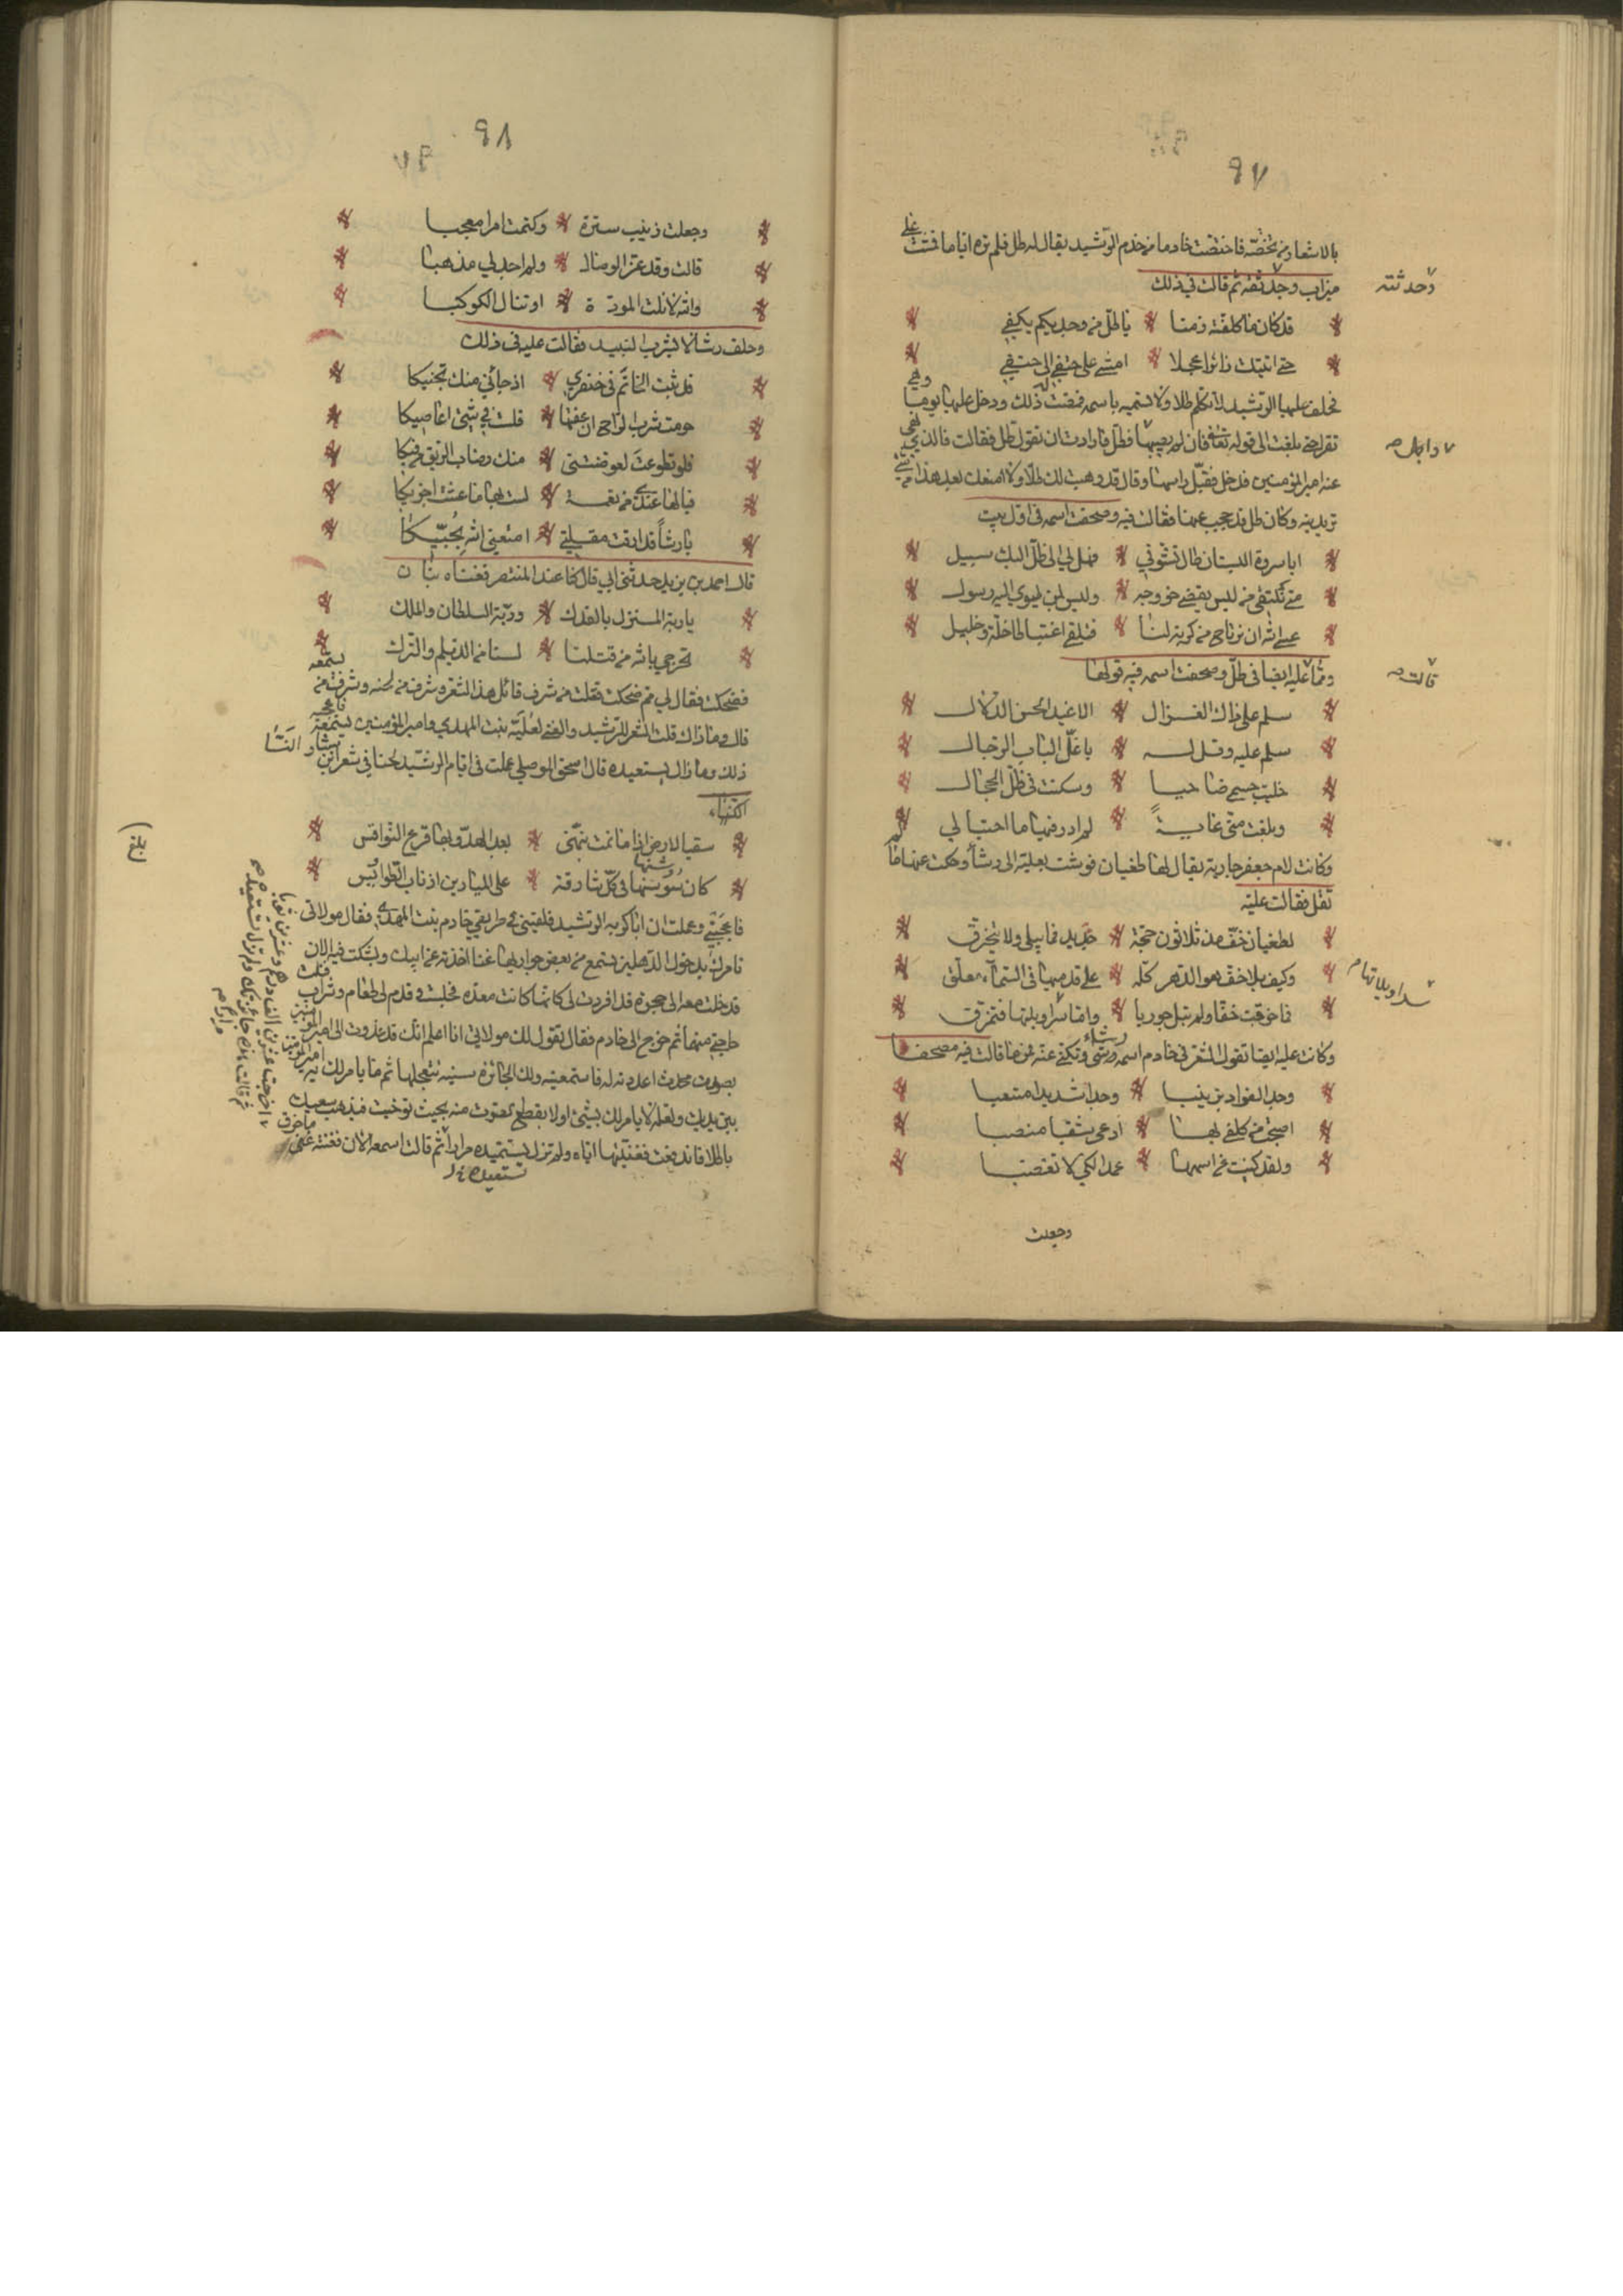 ٩٧
بالاشعار من تختصه فاختصت خادما من خدم الرشيد يقال له طل فلم تره اياما فمشت على
ميزاب وحدثته ثم قالت في ذلك
وحدثته
قد كان ما كلفته زمنا * يا طل من وجد بكم يكفي
حتى اتيتك زائرا عجلا * امشي على حتفي الى حتفي
فحلف عليها الرشيد لا تكلم طلا ولا تسميه باسمه فضمنت له ذلك ودخل عليها يوما وهي
تقرا حتى بلغت الى قوله تعالى فان لم يصبها وابل فطل فارادت ان تقول فطل فقالت فالذي نهى
وابل صح
عنه امير المؤمنين فدخل فقبل راسها وقال قد وهبت لك طلا ولا امنعك بعد هذا من شيء
تريدينه وكان طل قد حجب عنها فقالت فيه وصحفت اسمه في اول بيت
ايا سروة البستان طال تشوقي * فهل لي الى ظل اليك سبيل
متى يلتقي من ليس يقضى خروجه * وليس لمن يهوى اليه رسول
عسى الله ان نرتاح من كربة لنا * فيلقى اغتباطا خلة وخليل
ومما قالت علية ايضا في طل وصحفت اسمه فيه قولها
قالت صح
سلم على ذاك الغزال * الاغيد الحسن الدلال
سلم عليه وقل له * يا غل الباب الرجال
خليت جسمي ضاحيا * وسكنت في ظل الحجال
وبلغت مني غاية * لم ادر فيها ما احتيالي
وكانت لام جعفر جارية يقال لها طغيان فوشت بعلية الى رشأ وحكت عنها ما لم
تقل فقالت علية
لطغيان خف مذ ثلاثون حجة * جديد فما يبلى ولا يتخرق
وكيف بلا خف هو الدهر كله * على قدميها في السماء معلق
فما خرقت خفا ولم تبل جوربا * واما سراويلها فتمزق
سراويلاتها م
وكانت علية ايضا تقول الشعر في خادم اسمه رشأ وتكني عنه فمن ما قالت فيه مصحفا
وجد الفؤاد بزينبا * وجدا شديدا متعبا
اصبحت من كلفي بها * ادعى شقيا منصبا
ولقد كنيت عن اسمها * عمدا لكي لا تغضبا
وجعلت
٩٨
وجعلت زينب سترة * وكتمت امرا معجبا
قالت وقد عز الوصال * ولم اجد لي مذهبا
والله لا نلت المودة * او تنال الكوكبا
وحلف رشا لا يشرب النبيذ فقالت علية في ذلك
قد ثبت الخاتم في خنصري * اذ جاءني منك تجنيكا
حرمت شرب الراح ان عفتها * فلست في شيء اعاصيكا
فلو تطوعت لعوضتني * منك رضاب الريق من فيكا
فيا لها عندي من نعمة * لست بها ما عشت اجزيكا
يا رشأ قد ارقت مقلتي * امتعني الله بحبيكا
قال احمد بن يزيد حدثني ابي قال كنا عند المنتصر فغناه بنان
يا ربة المنزل بالفدك * وربة السلطان والملك
تحرجي بالله من قتلنا * لسنا من الديلم والترك
فضحكت فقال لي مم ضحكت فقلت من شرف قائل هذا الشعر وشرف من لحنه وشرف من يستمعه
قال وما ذاك قلت الشعر للرشيد والغناء لعلية بنت المهدي وامير المؤمنين يستمعه فاعجبه
ذلك وما زال يستعيده قال اسحق الموصلي عملت في ايام الرشيد لحنا في شعر ابن
سقيا لارض اذا ما نمت نبهني * بعد الهدو بها قرع النواقيس
كان سوسنها في كل شارقة * على الميادين اذناب الطواويس
فاعجبني وعملت ان اباكر به الرشيد فلقيني في طريقي خادم بنت المهدي فقال مولاتي
تامرك بدخول الدهليز لتستمع من بعض جواريها غناء اخذته عن ابيك وشكت فيه الان
فدخلت معه الى حجرة قد افردت لي كانها كانت معدة فجلست وقدم لي طعام وشراب فنلت
حاجتي منهما ثم خرج الي خادم فقال تقول لك مولاتي انا اعلم انك قد غدوت الى امير المؤمنين
بصوت محدث اعددته له فاسمعنيه ولك الجائزة سنية تتعجلها ثم ما يامر لك به امير المؤمنين
بين يديك ولعله لا يامر لك بشيء او لا يقطع الصوت منه بحيث توخيت فيذهب سعيك
باطلا فاندفعت فغنيتها اياه ولم تزل تستعيده مرارا ثم قالت اسمعه الان فغنته
تستعيده